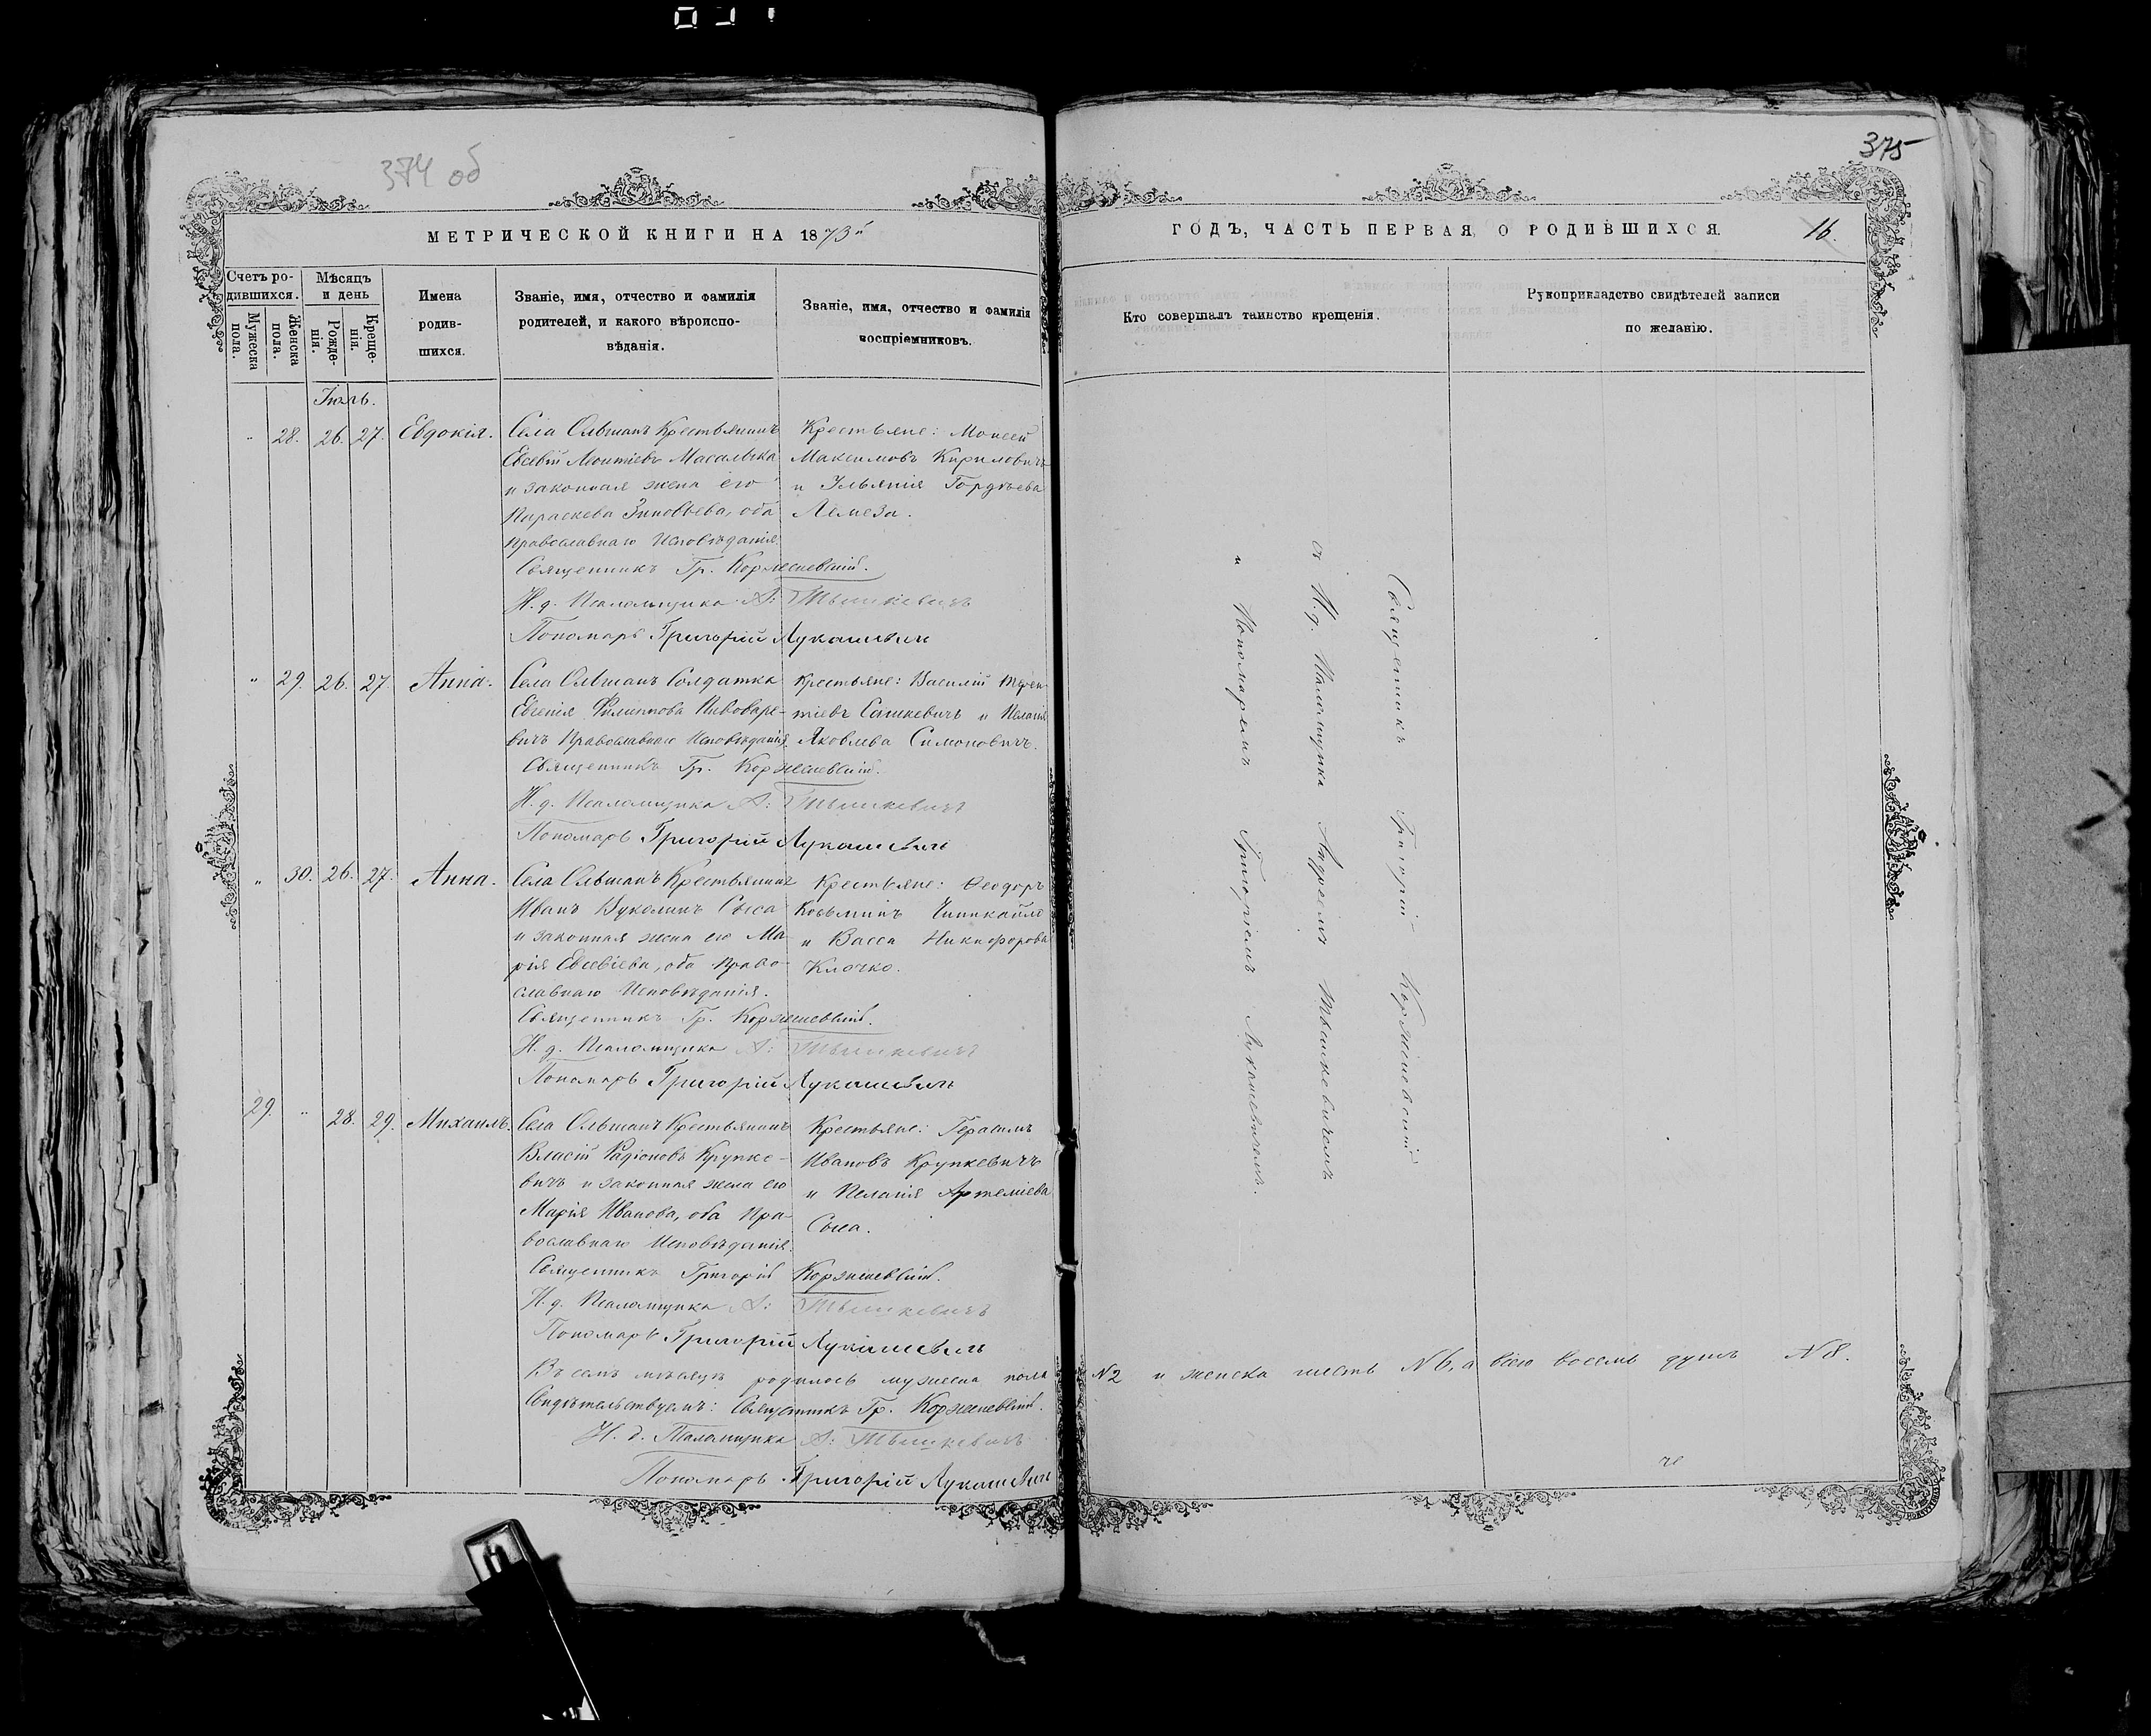 374 об
375
МЕТРИЧЕСКОЙ КНИГИ НА 1873й
ГОДЪ, ЧАСТЬ ПЕРВАЯ, О РОДИВШИХСЯ.
16.
Счетъ ро-
дившихся.
Мужеска
пола.
Женска
пола.
Мѣсяцъ
и день
Рожде-
нія.
Креще-
нія.
Имена
родив-
шихся.
Званіе, имя, отчество и фамилія
родителей, и какого вѣроиспо-
вѣданія.
Званіе, имя, отчество и фамилія
воспріемниковъ.
Кто совершалъ таинство крещенія.
Рукоприкладство свидѣтелей записи
по желанію.
Іюль.
" 28. 26. 27. Евдокія.
Села Ольшанъ Крестьянинъ
Евсевій Леонтіевъ Масалыка
и законная жена его
Параскева Зиновьева, оба
Православнаго Исповѣданія.
Крестьяне: Моисей
Максимовъ Кириловичъ
и Ульянія Гордѣева
Лемеза.
Священникъ Гр. Корженевскій.
И. д. Псаломщика А: Тышкевичъ
Пономарь Григорій Лукашевич
" 29. 26. 27. Анна.
Села Ольшанъ Солдатка
Евгенія Филиппова Пивоваре-
вичъ Православнаго Исповѣданія.
Крестьяне: Василій Терен
тіевъ Сашкевичъ и Пелагія
Яковлева Симоновичъ.
Священникъ Гр. Корженевскій.
И. д. Псаломщика А: Тышкевичъ
Пономарь Григорій Лукашевичъ
" 30. 26. 27. Анна.
Села Ольшанъ Крестьянинъ
Иванъ Вуколинъ Сыса
и законная жена его Ма-
рія Евсевіева, оба Право-
славнаго Исповѣданія.
Крестьяне: Ѳеодоръ
Козьминъ
и Васса Никифорова
Клочко.
Священникъ Гр. Корженевскій.
И. д. Псаломщика А: Тышкевичъ
Пономарь Григорій Лукашевичъ
29. " 28. 29. Михаилъ.
Села Ольшанъ Крестьянинъ
Власій Радіоновъ Крупке-
вичъ и законная жена его
Марія Иванова, оба Пра-
вославнаго Исповѣданія.
Крестьяне: Герасимъ
Ивановъ Крупкевичъ
и Пелагія Артеміева
Сыса.
Священникъ Григорій Корженевскій.
И. д. Псаломщика А: Тышкевичъ
Пономарь Григорій Лукашевичъ
Въ семъ мѣсяцѣ родилось мужеска пола №2 и женска шесть №6, а всего восемь душъ №8.
Свидѣтельствуемъ: Священникъ Гр. Корженевскій.
И. д. Псаломщика А: Тышкевичъ
Пономарь Григорій Лукашевичъ
Священникъ Григорій Корженевскій
съ И. д. Псаломщика Андреемъ Тышкевичемъ
и Пономаремъ Григоріемъ Лукашевичемъ.